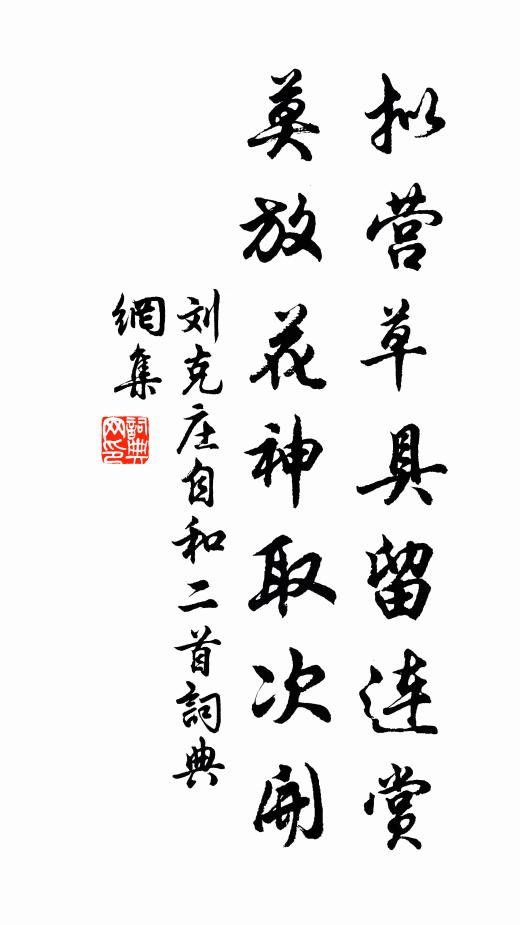 拟营草具留连赏
莫放花神取次开
刘克庄自和二首詞典
網集
詞典
网印